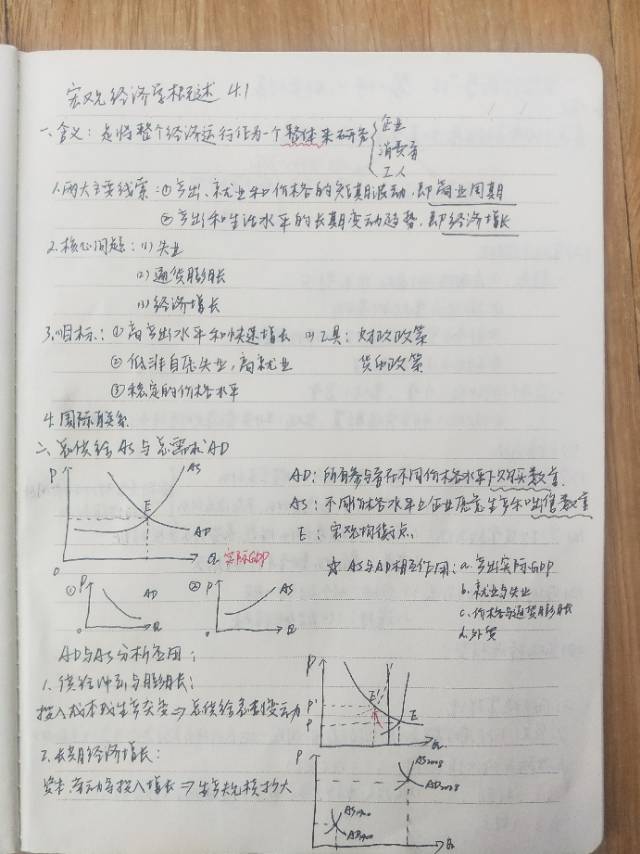 宏观经济学概述 4.1
一、含义：是将整个经济运行作为一个整体来研究 { 企业
消费者
工人
1.两大主要线索：①产出、就业和价格的短期波动，即商业周期
②产出和生活水平的长期变动趋势，即经济增长
2.核心问题：(1)失业
(2)通货膨胀
(3)经济增长
3.(1)目标：①高产出水平和快速增长 (2)工具：财政政策
②低非自愿失业，高就业 货币政策
③稳定的价格水平
4.国际联系
二、总供给AS与总需求AD
P AS
E
AD
0 Q 实际GDP
AD：所有参与者在不同价格水平下购买数量
AS：不同价格水平上企业愿意生产和出售数量
E：宏观均衡点
☆ AS与AD相互作用：a.产出实际GDP
b.就业与失业
c.价格与通货膨胀
d.外贸
① P AD Q
② P AS Q
AD与AS分析应用：
1.供给冲击与膨胀：
投入成本或生产突变⇒总供给急剧变动
P E' P' P E Q
2.长期经济增长：
资本、劳动等投入增长⇒生产规模扩大
P AS2008
AD2008
AS1900
AD1900
Q